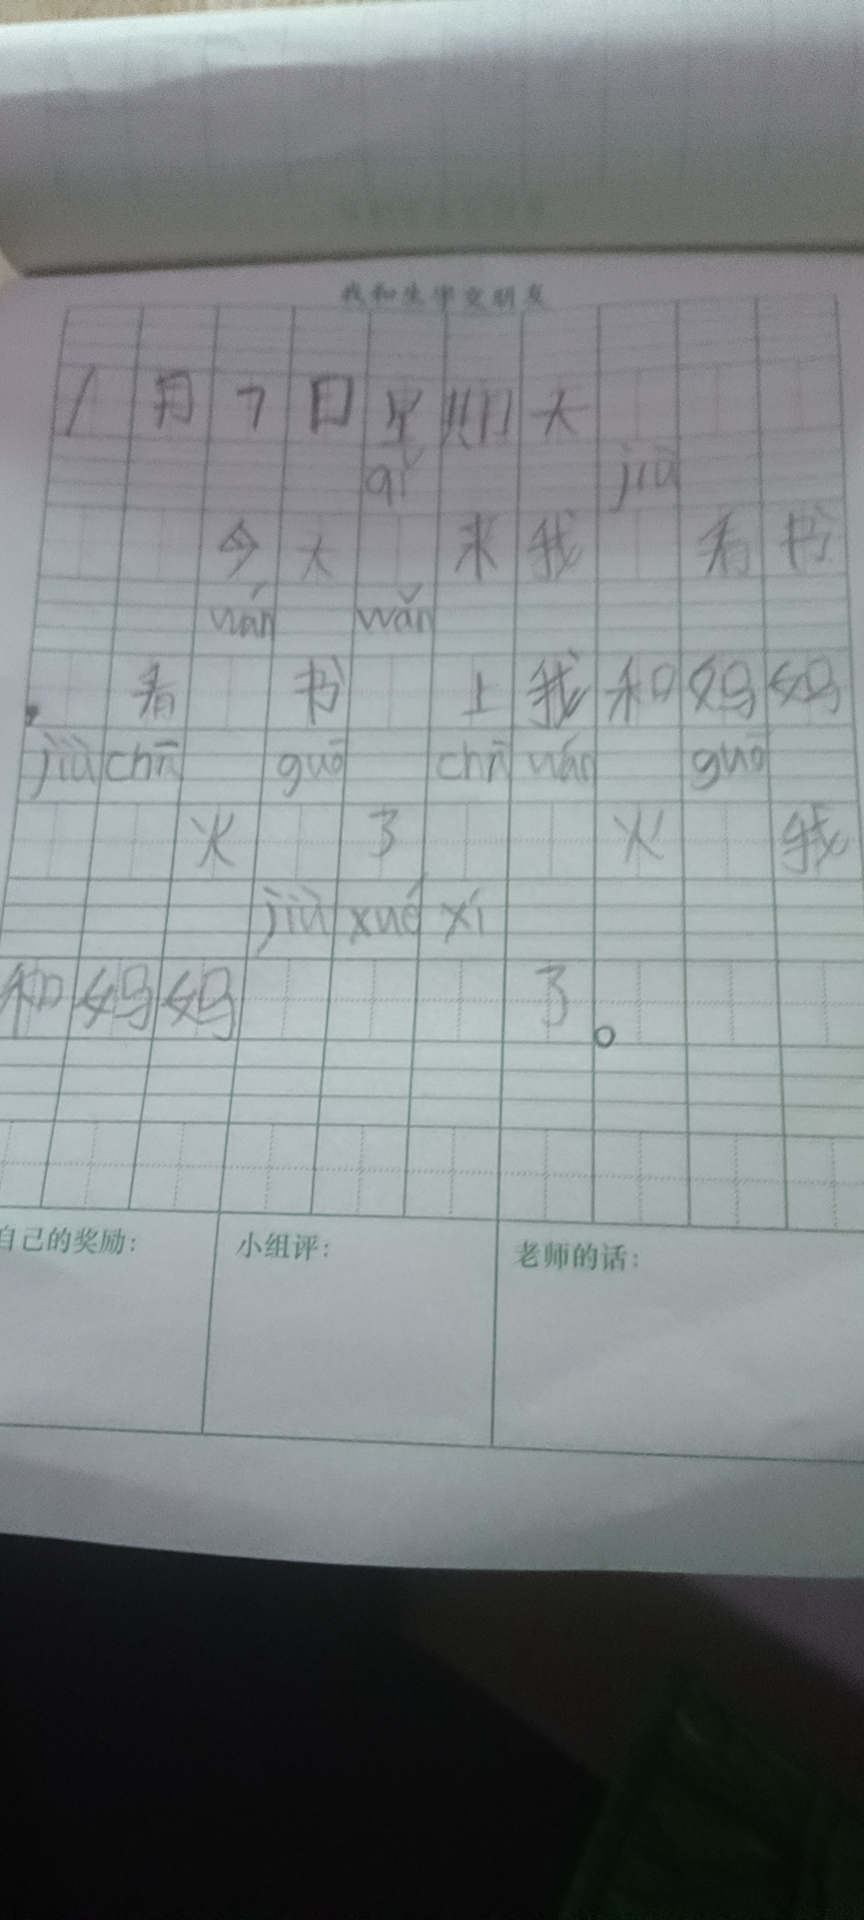 我和生字交朋友
1月7日星期天
qǐ jiù
今天 来我 看书
uán wǎn
，看 书 上我和妈妈
jiù chī guō chī uán guō
火 了 火 我
jiù xué xí
和妈妈 了。
自己的奖励： 小组评： 老师的话：